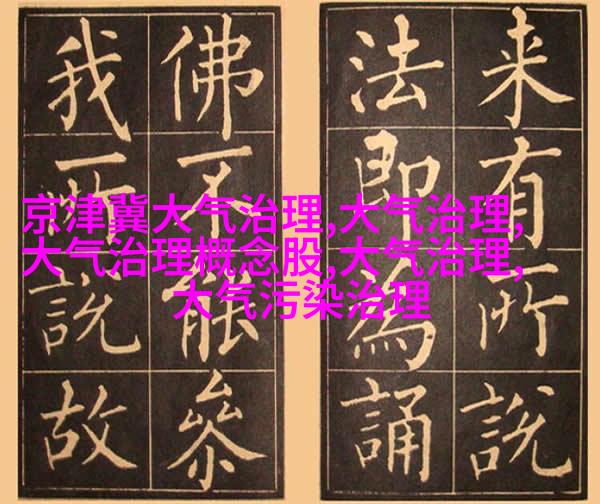 来有所說
法即為誦
佛不能叅
我所說故
京津冀大气治理,大气治理,
大气治理概念股,大气治理,
大气污染治理